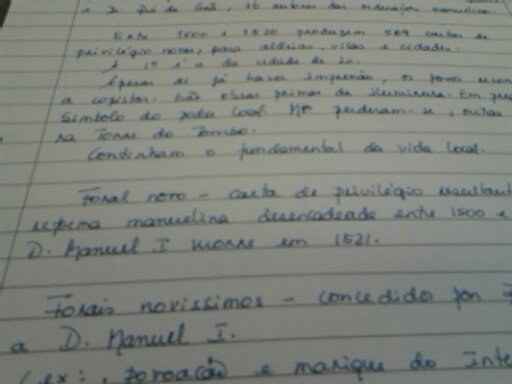 Entre 1500 e 1520 produzem 589 cartas de
privilégio novas, para aldeias, vilas e cidades.
A 1ª é a da cidade de Lx.
Apesar de já haver impressão, os povos
a copistas. São obras primas da iluminura. Em
Símbolo do poder local. perderam-se, outras
na Torre do Tombo.
Continham o fundamental da vida local.
Foral novo – carta de privilégio
reforma manuelina desencadeada entre 1500 e
D. Manuel I morre em 1521.
Forais novissimos – concedido por
a D. Manuel I.
(ex: , foroação e manique do Inte